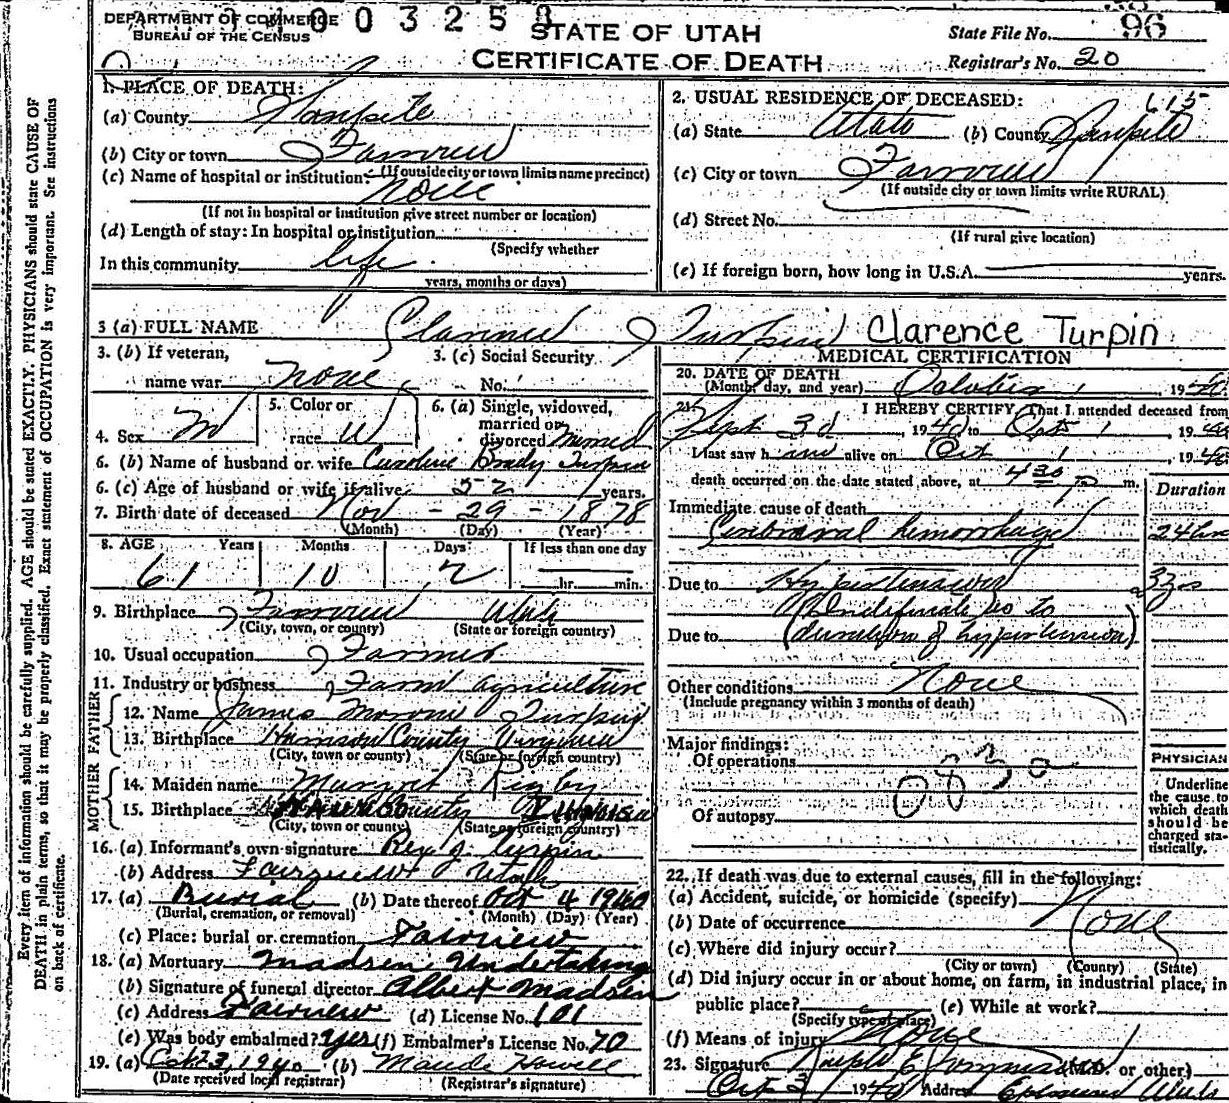 DEPARTMENT OF COMMERCE
BUREAU OF THE CENSUS
4003258
STATE OF UTAH
CERTIFICATE OF DEATH
State File No. 96
Registrar's No. 20
1. PLACE OF DEATH:
(a) County Sanpete
(b) City or town Fairview
(If outside city or town limits name precinct)
(c) Name of hospital or institution: None
(If not in hospital or institution give street number or location)
(d) Length of stay: In hospital or institution
(Specify whether
In this community life
years, months or days)
615
2. USUAL RESIDENCE OF DECEASED:
(a) State Utah (b) County Sanpete
(c) City or town Fairview
(If outside city or town limits write RURAL)
(d) Street No.
(If rural give location)
(e) If foreign born, how long in U.S.A. years.
3 (a) FULL NAME Clarence Turpin Clarence Turpin
3. (b) If veteran,
name war None
3. (c) Social Security
No.
4. Sex M
5. Color or
race W
6. (a) Single, widowed,
married or
divorced Married
6. (b) Name of husband or wife Caroline Brady Turpin
6. (c) Age of husband or wife if alive 52 years.
7. Birth date of deceased Nov - 29 - 1878
(Month) (Day) (Year)
8. AGE Years Months Days If less than one day
61 10 2 hr. min.
9. Birthplace Fairview Utah
(City, town, or county) (State or foreign country)
10. Usual occupation Farmer
11. Industry or business Farm Agriculture
FATHER
12. Name James Moroni Turpin
13. Birthplace Harrison County Virginia
(City, town or county) (State or foreign country)
MOTHER
14. Maiden name Margret Rigby
15. Birthplace County
(City, town or county) (State or foreign country)
16. (a) Informant's own signature Rex J. Turpin
(b) Address Fairview Utah
17. (a) Burial (b) Date thereof Oct 4 1940
(Burial, cremation, or removal) (Month) (Day) (Year)
(c) Place: burial or cremation Fairview
18. (a) Mortuary Madsen Undertaking
(b) Signature of funeral director Albert Madsen
(c) Address Fairview (d) License No. 101
(e) Was body embalmed? yes (f) Embalmer's License No. 70
19. (a) Oct 3, 1940 (b) Maude Howell
(Date received local registrar) (Registrar's signature)
MEDICAL CERTIFICATION
20. DATE OF DEATH
(Month, day, and year) October 1, 1940
21. I HEREBY CERTIFY, That I attended deceased from
Sept 3d, 1940 to Oct 1, 1940
I last saw h alive on Oct 1, 1940
death occurred on the date stated above, at 4 30 p m.
Duration
Immediate cause of death
Cerebral hemorrhage 24 hrs
Due to Hypertension
Indefinate as to
Due to (duration of hypertension)
Other conditions None
(Include pregnancy within 3 months of death)
Major findings:
Of operations
083a
Of autopsy
PHYSICIAN
Underline
the cause to
which death
should be
charged sta-
tistically.
22. If death was due to external causes, fill in the following:
(a) Accident, suicide, or homicide (specify)
(b) Date of occurrence None
(c) Where did injury occur?
(City or town) (County) (State)
(d) Did injury occur in or about home, on farm, in industrial place, in
public place? (e) While at work?
(Specify type of place)
(f) Means of injury None
23. Signature (M.D. or other)
Oct 3 1940 Address
Every item of information should be carefully supplied. AGE should be stated EXACTLY. PHYSICIANS should state CAUSE OF
DEATH in plain terms, so that it may be properly classified. Exact statement of OCCUPATION is very important. See instructions
on back of certificate.